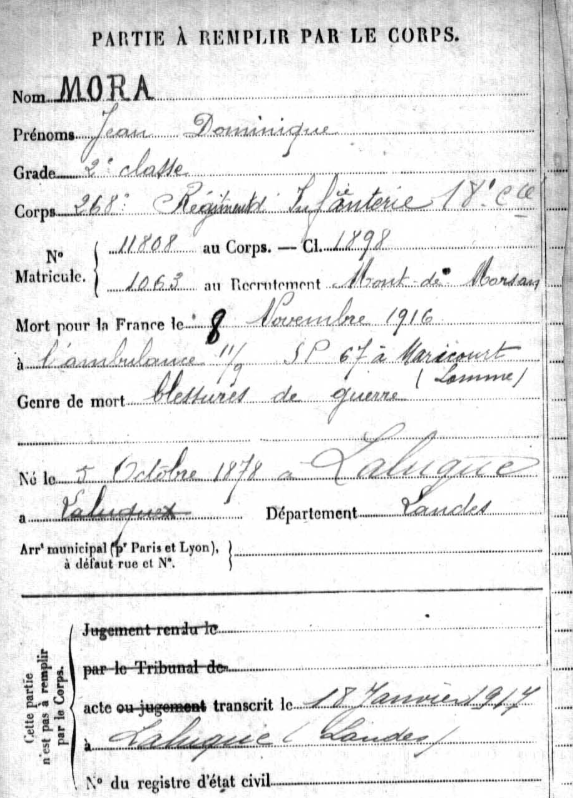 PARTIE À REMPLIR PAR LE CORPS.
Nom MORA
Prénoms Jean Dominique
Grade 2e classe
Corps 268e Régiment d'Infanterie 18e Cie
N° Matricule. { 11808 au Corps. — Cl. 1898
1063 au Recrutement Mont-de-Marsan
Mort pour la France le 8 Novembre 1916
à l'ambulance 11/9 SP 67 à Maricourt
(Somme)
Genre de mort blessures de guerre
Né le 5 Octobre 1878 à Laluque
a Laluque Département Landes
Arrt municipal (pr Paris et Lyon), }
à défaut rue et N°.
Cette partie n'est pas à remplir par le Corps.
Jugement rendu le
par le Tribunal de
acte ou jugement transcrit le 18 Janvier 1917
à Laluque (Landes)
N° du registre d'état civil